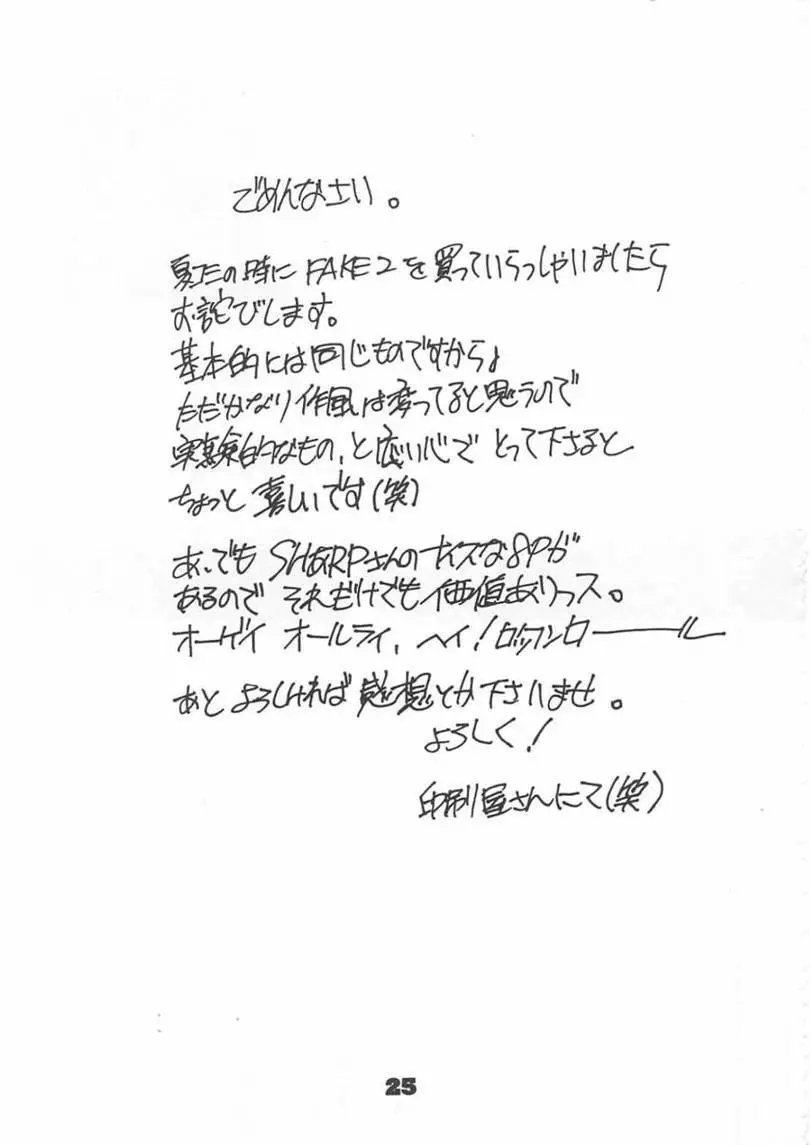 ごめんなさい。
夏コミの時に FAKE2を買っていらっしゃいましたら
お詫びします。
基本的には同じものですから。
ただかなり作風は変ってると思うので
実験的なもの、と広い心で とって下さると
ちょっと 喜しいです(笑)
あ、でも SHARPさんのナイスな8Pが
あるので それだけでも価値ありっス。
オーゲイ オールライ、ヘイ!ロックンロール
あと よろしければ 感想とか下さいませ。
よろしく!
印刷屋さんにて(笑)
25